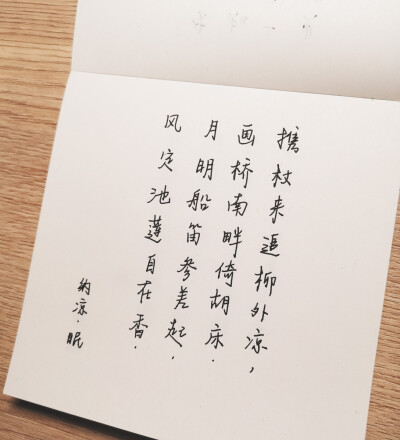 携杖来追柳外凉，
画桥南畔倚胡床．
月明船笛参差起，
风定池蓮自在香．
纳凉·眠